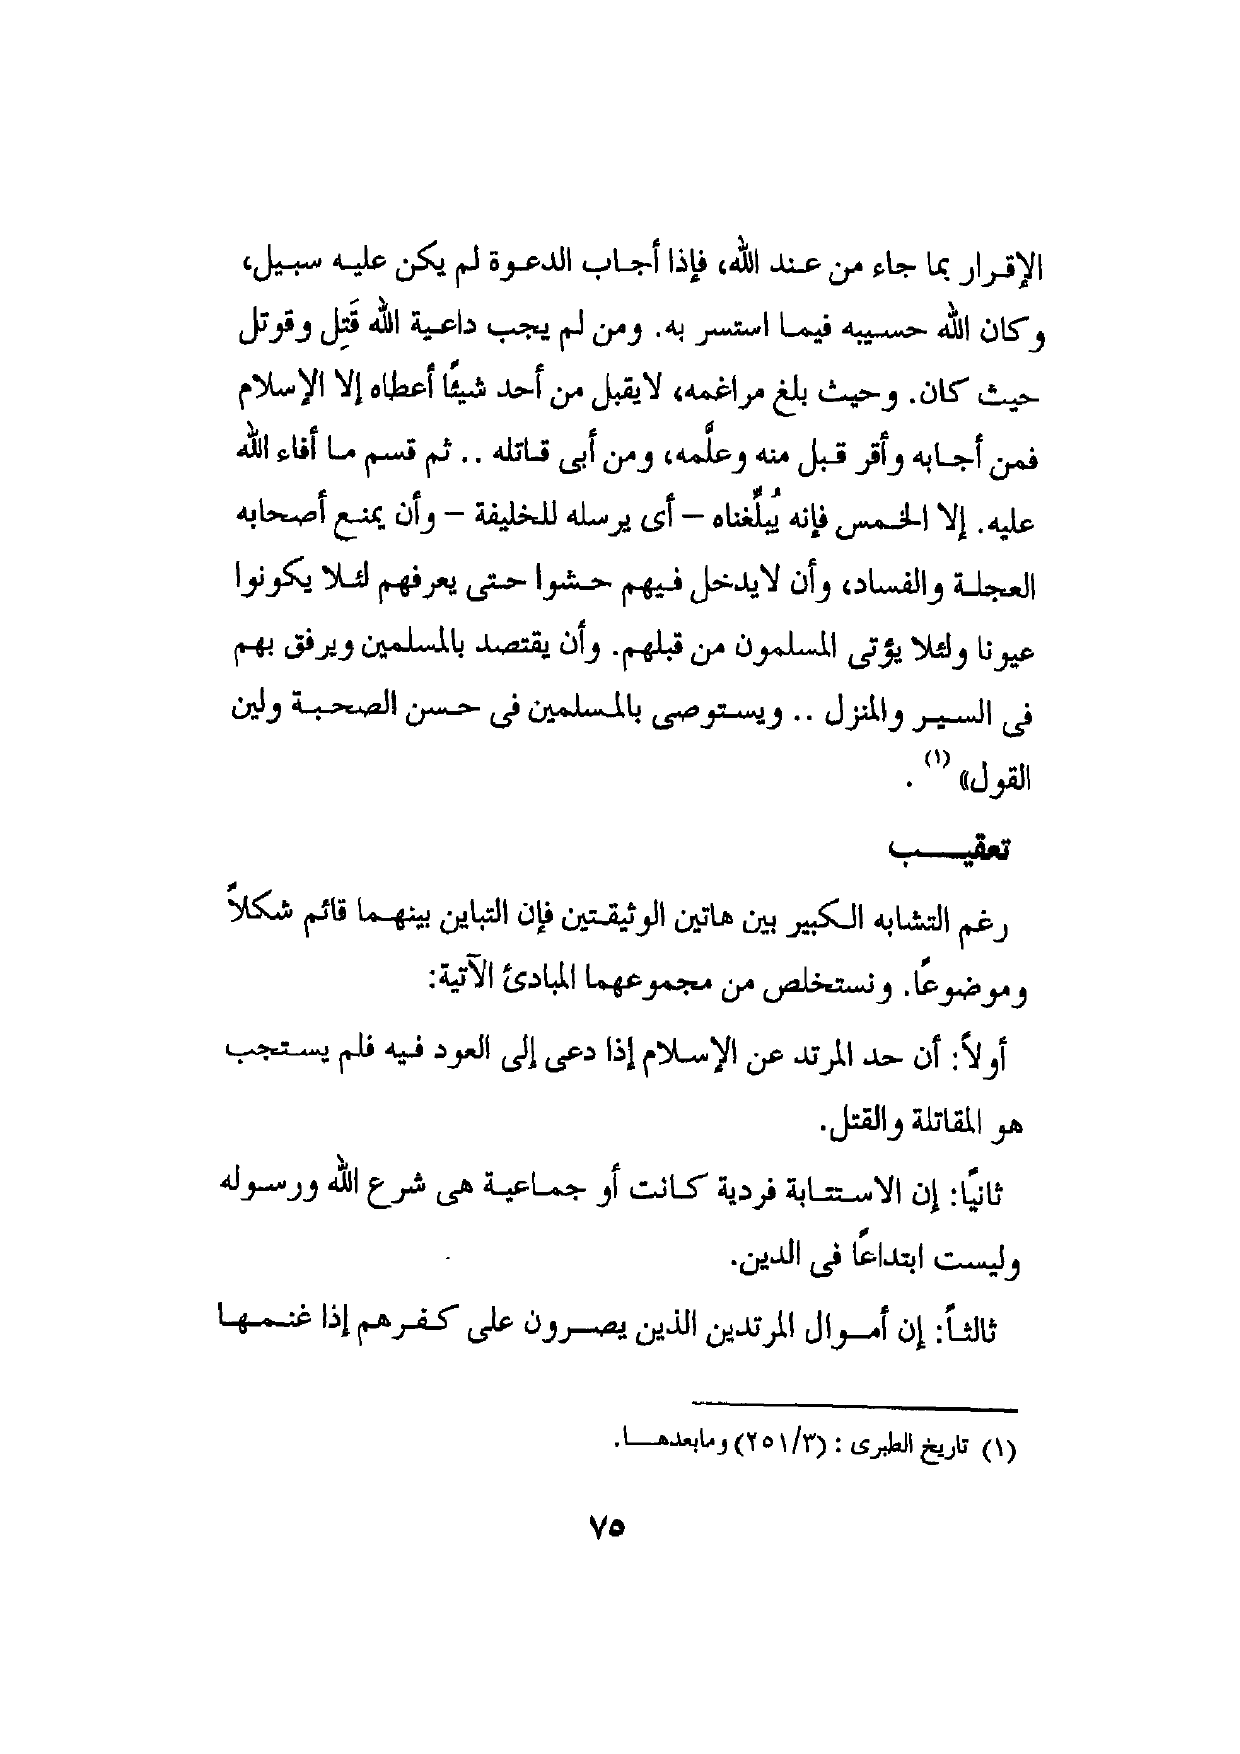 الإقرار بما جاء من عند الله، فإذا أجاب الدعوة لم يكن عليه سبيل،
وكان الله حسيبه فيما استسر به. ومن لم يجب داعية الله قَتِل وقوتل
حيث كان. وحيث بلغ مراغمه، لايقبل من أحد شيئًا أعطاه إلا الإسلام
فمن أجابه وأقر قبل منه وعلَّمه، ومن أبى قاتله .. ثم قسم ما أفاء الله
عليه. إلا الخمس فإنه يُبلِّغناه – أى يرسله للخليفة – وأن يمنع أصحابه
العجلة والفساد، وأن لايدخل فيهم حشوا حتى يعرفهم لئلا يكونوا
عيونا ولئلا يؤتى المسلمون من قبلهم. وأن يقتصد بالمسلمين ويرفق بهم
فى السير والمنزل .. ويستوصى بالمسلمين فى حسن الصحبة ولين
القول» (١) .
تعقيب
رغم التشابه الكبير بين هاتين الوثيقتين فإن التباين بينهما قائم شكلاً
وموضوعًا. ونستخلص من مجموعهما المبادئ الآتية:
أولاً: أن حد المرتد عن الإسلام إذا دعى إلى العود فيه فلم يستجب
هو المقاتلة والقتل.
ثانيًا: إن الاستتابة فردية كانت أو جماعية هى شرع الله ورسوله
وليست ابتداعًا فى الدين.
ثالثاً: إن أموال المرتدين الذين يصرون على كفرهم إذا غنمها
(١) تاريخ الطبرى : (٢٥١/٣) ومابعدها.
٧٥